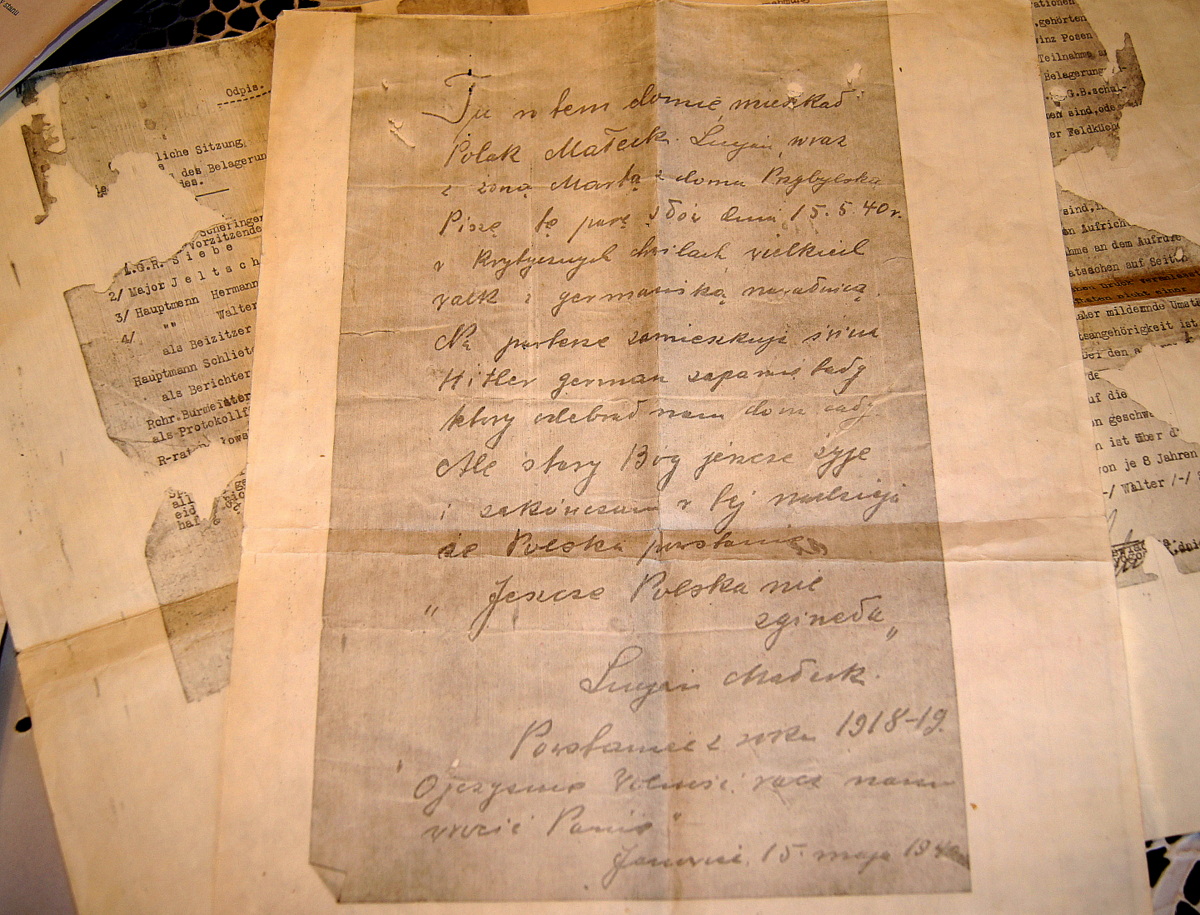 y stanu
Odpis.
liche Sitzung,
des Belagerun
des.
Scheringer
Vorzitzende
I.G.R. Siebe
2/ Major Jeltsch
3/ Hauptmann Hermann
4/ "" Walter
als Beizitzer
Hauptmann Schliet
als Berichter
Rchr. Burmeister
als Protokollf
R-ra
all
eid
haf
Tu w tem domie mieszkał
Polak Małecki Lucjan wraz
z żoną Martą z domu Przybylska
Piszę tę parę słów dnia 15.5.40 r.
w krytycznych chwilach wielkich
walk z germańską nawałnicą.
Na parterze zamieszkują świnia
Hitler german
który odebrał nam dom cały
Ale stary Bóg jeszcze żyje
i zakończam w tej nadzieji
że Polska powstanie
„Jeszcze Polska nie
zgineła„
Lucjan Małecki.
Powstaniec z roku 1918-19.
Ojczyzne Wolność racz nam
wrócić Panie"
15. maja 1940
ationen
gehörten
inz Posen
Teilnahme a
Belagerung
G.B.schal-
en sind,ode
er Feldküch
sind,
en Aufrich
hme an dem Aufrufe
atsachen auf Seite
aher mildernde Umstä
tsangehörigkeit ist
Bei den a
de
uf die
n geschw
n ist über d
von je 8 Jahren
-/ Walter /-/